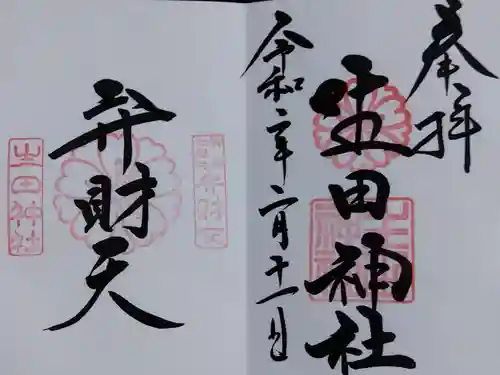 奉拝
生田神社
令和二年二月十一日
弁財天
生田神社